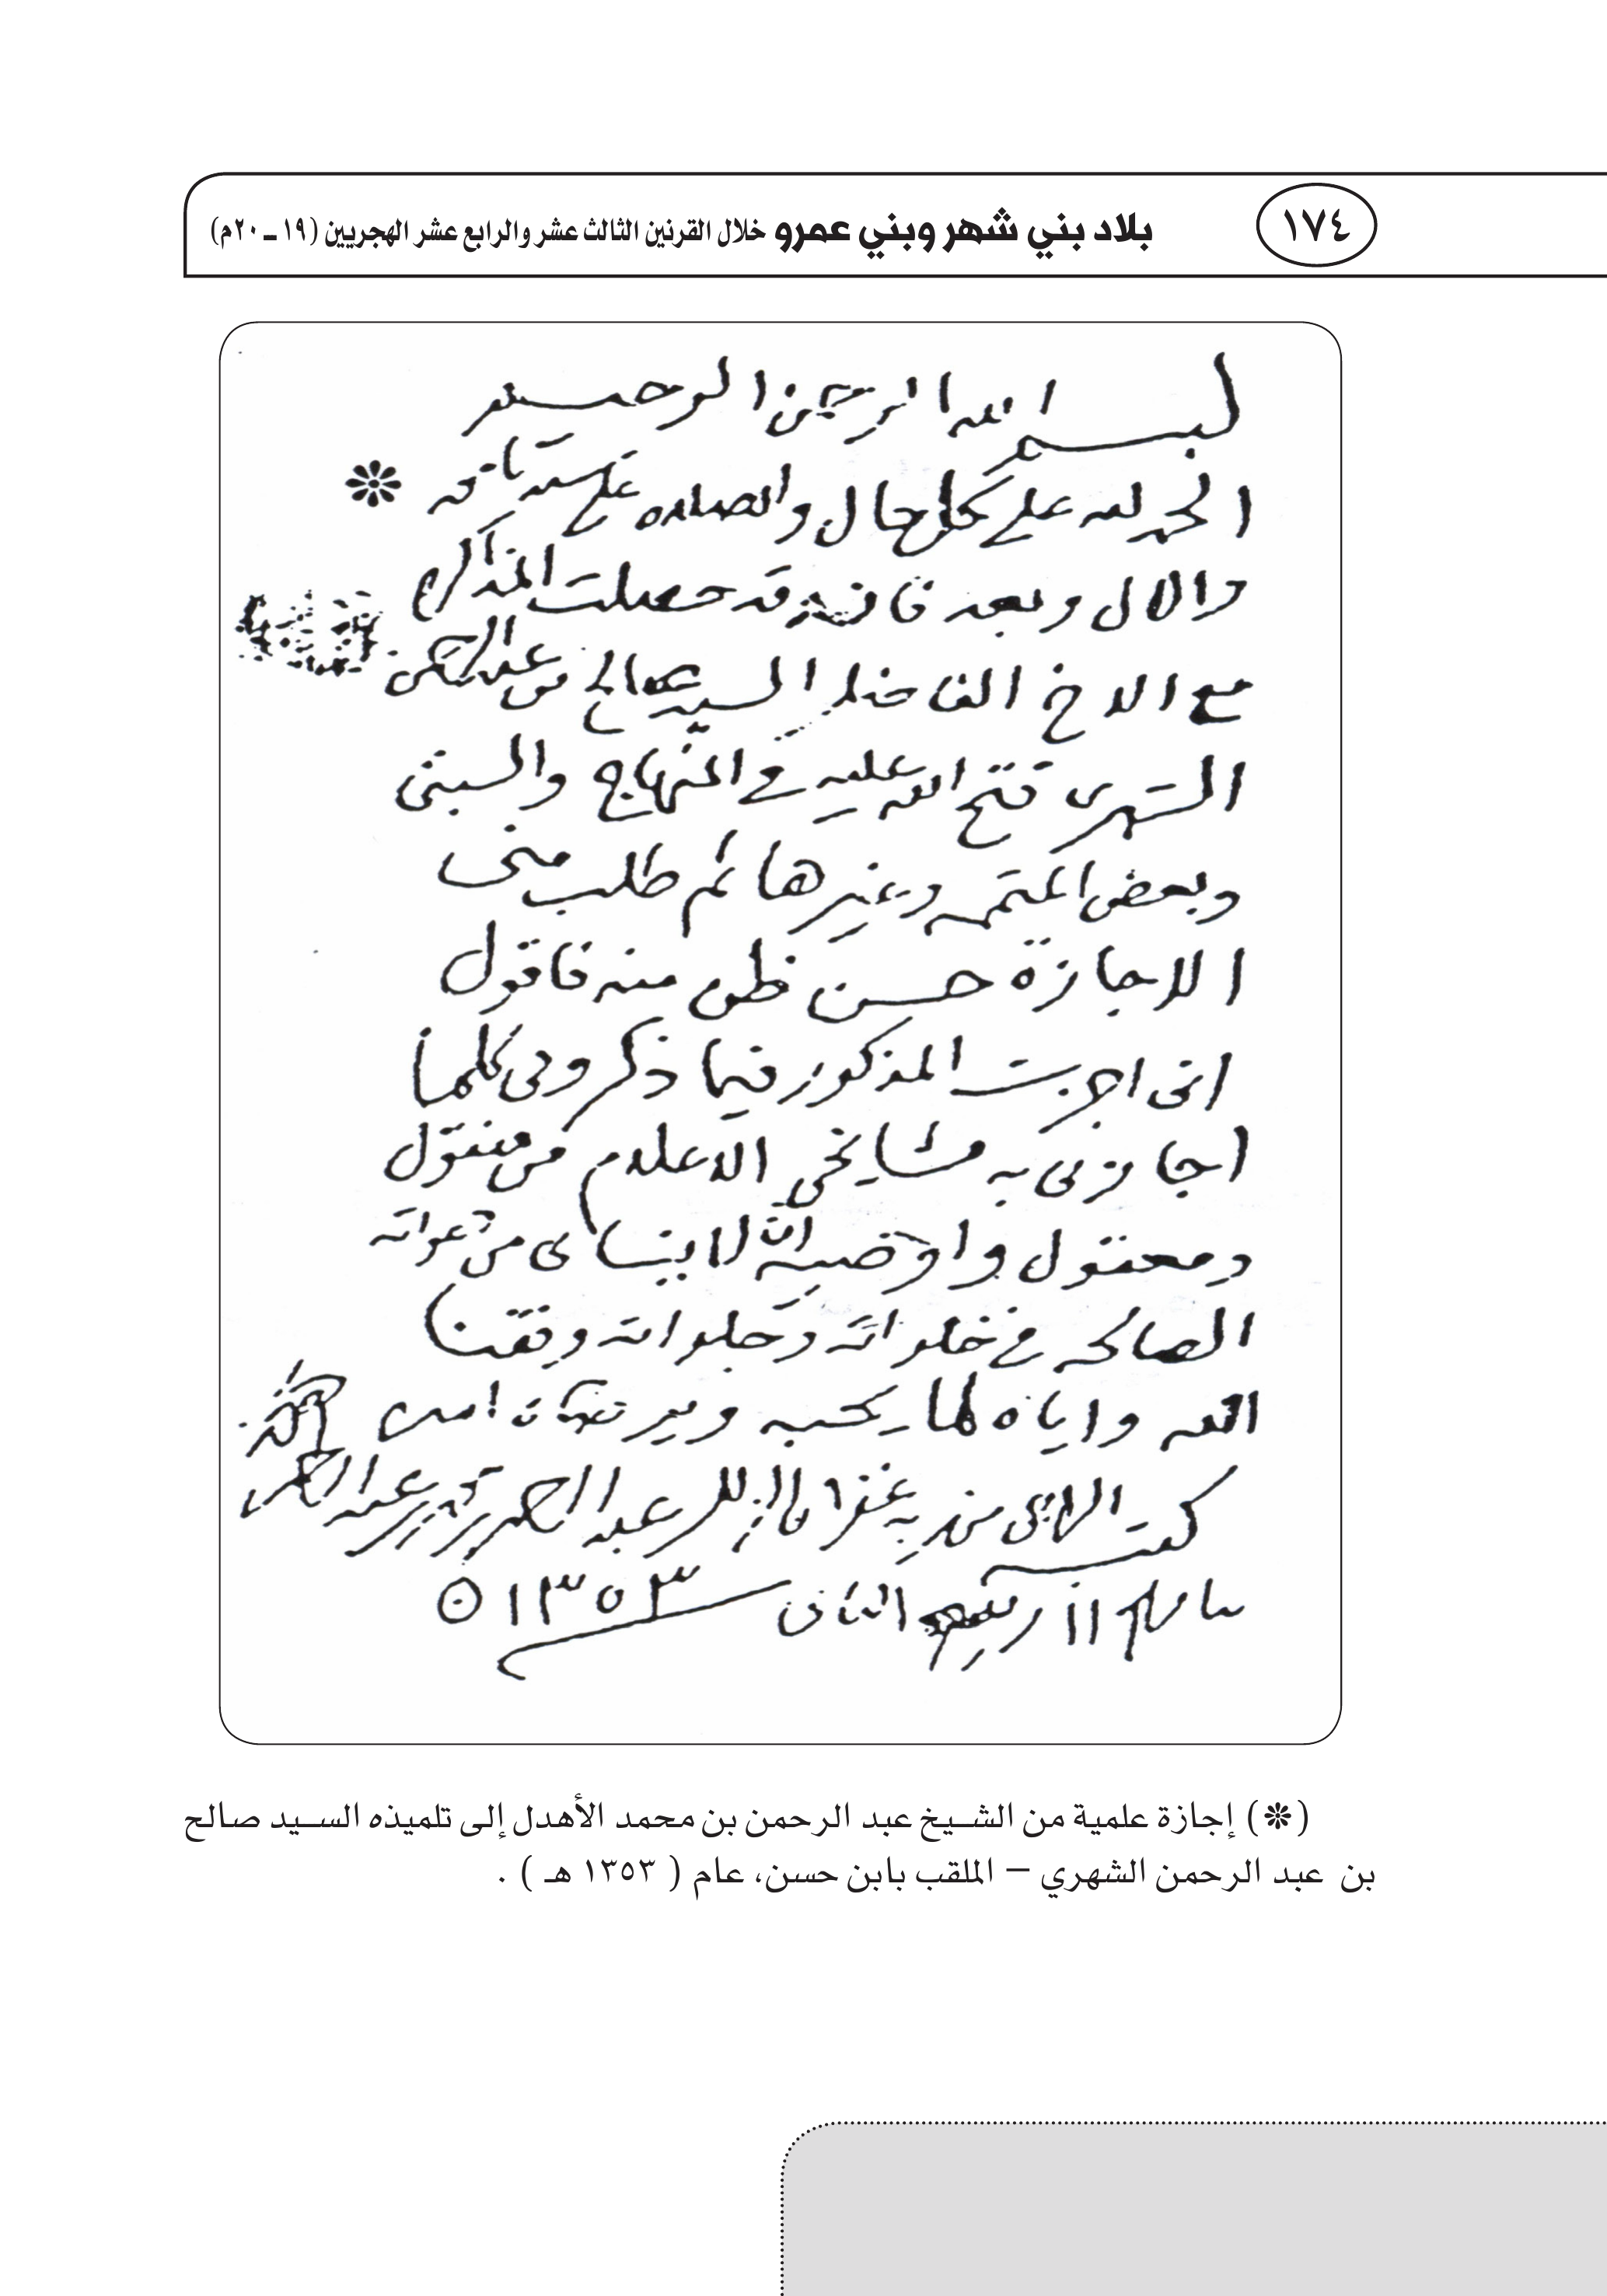 ١٧٤
بلاد بني شهر وبني عمرو خلال القرنين الثالث عشر والرابع عشر الهجريين (١٩ ـ ٢٠م)
بسم الله الرحمن الرحيم
الحمد لله على كل حال والصلاه على سيدنا محمد ❊
والال وبعد فانه قد حصلت المذاكرة
مع الاخ الفاضل السيد صالح بن عبد الرحمن
الشهرى فتح الله عليه في المنهاج والسبتى
وبعض المتممه وغيرها ثم طلب منى
الاجازة حسن ظن منه فاقول
انى اجزت المذكور فيما ذكر وفى كلما
اجازنى به مشايخي الاعلام من منقول
ومعقول واوصيه ان لا ينسانى من دعواته
الصالحه في خلواته وجلواته وفقنا
الله واياه لما يحبه ويرضاه امين
كتب الراجي من ربه غفران الزلل عبد الرحمن بن محمد بن عبد الرحمن
الاهدل
ربيع الثانى ١٣٥٣
(❊) إجازة علمية من الشـيخ عبد الرحمن بن محمد الأهدل إلى تلميذه السـيد صالح
بن عبد الرحمن الشهري – الملقب بابن حسن، عام ( ١٣٥٣ هـ ) .